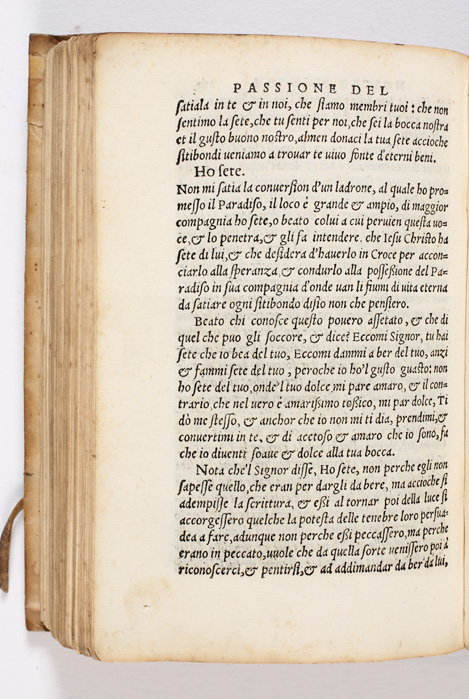 PASSIONE DEL
ſatiala in te & in noi, che ſiamo membri tuoi : che non
ſentimo la ſete, che tu ſenti per noi, che ſei la bocca noſtra
et il guſto buono noſtro, almen donaci la tua ſete accioche
ſitibondi ueniamo a trouar te uiuo fonte d'eterni beni.
Ho ſete.
Non mi ſatia la conuerſion d'un ladrone, al quale ho pro-
meſſo il Paradiſo, il loco è grande & ampio, di maggior
compagnia ho ſete, o beato colui a cui peruien queſta uo-
ce, & lo penetra, & gli fa intendere, che Ieſu Chriſto ha
ſete di lui, & che deſidera d'hauerlo in Croce per accon-
ciarlo alla ſperanza & condurlo alla poſſeßione del Pa-
radiſo in ſua compagnia d'onde uan li fiumi di uita eterna
da ſatiare ogni ſitibondo diſio non che penſiero.
Beato chi conoſce queſto pouero aſſetato, & che di
quel che puo gli ſoccore, & dice Eccomi Signor, tu hai
ſete che io bea del tuo, Eccomi dammi a ber del tuo, anzi
& fammi ſete del tuo, peroche io ho'l guſto guaſto: non
ho ſete del tuo, onde'l tuo dolce, mi pare amaro, & il con-
trario, che nel uero è amarißimo toßico, mi par dolce, Ti
dò me ſteſſo, & anchor che io non mi ti dia, prendimi, &
conuertimi in te, & di acetoſo & amaro che io ſono, fa
che io diuenti ſoaue & dolce alla tua bocca.
Nota che'l Signor diſſe, Ho ſete, non perche egli non
ſapeſſe quello, che eran per dargli da bere, ma accioche ſi
adempiſſe la ſcrittura, & eßi al tornar poi della luce ſi
accorgeſſero quelche la poteſta delle tenebre loro perſua-
dea a fare, adunque non perche eßi peccaſſero, ma perche
erano in peccato, uuole che da quella ſorte ueniſſero poi a
riconoſcerci, & pentirſi, & ad addimandar da ber da lui,